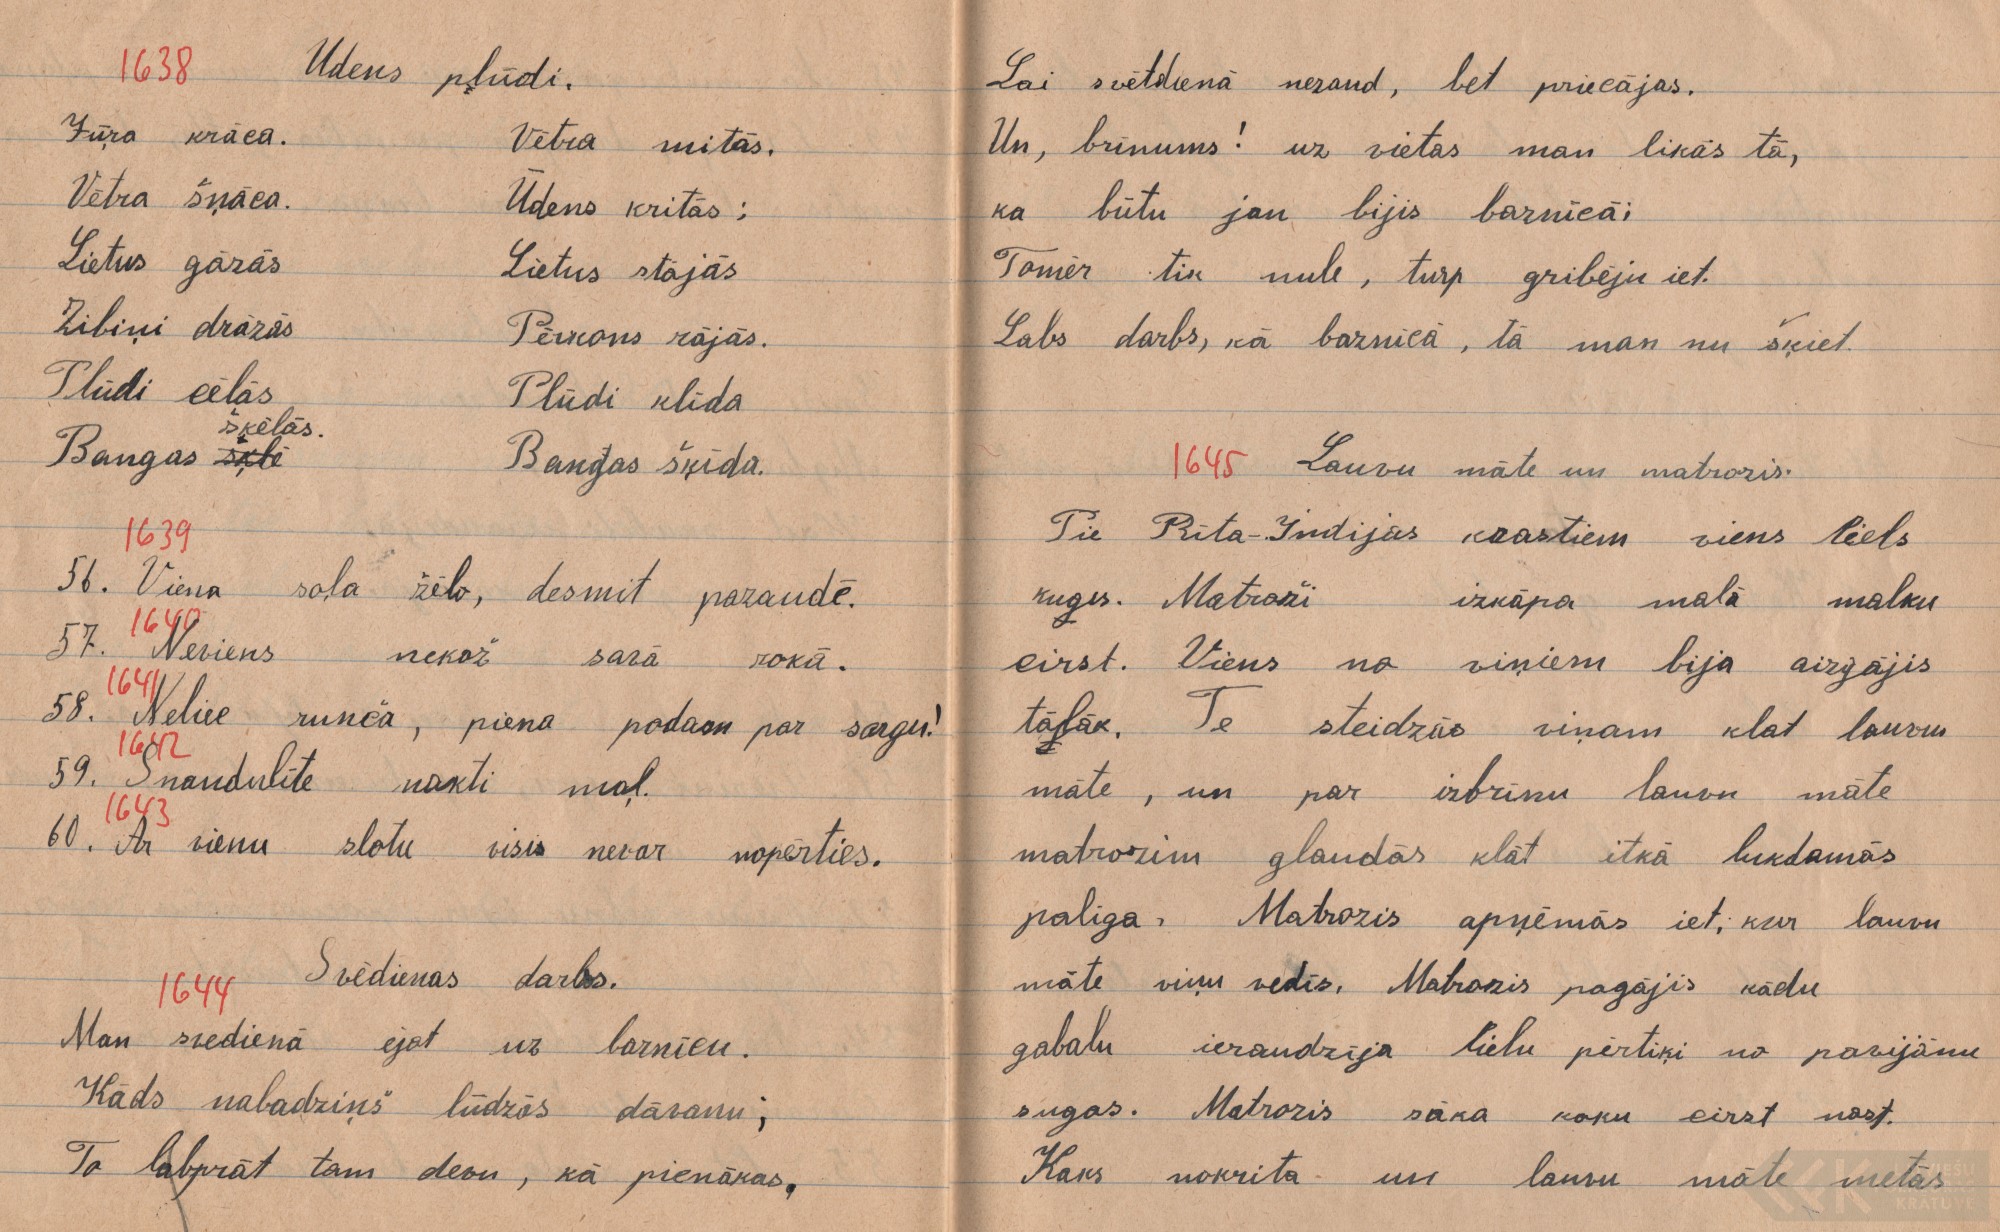 1638 Udens pļūdi.
Jūŗa krāca. Vētra mitās.
Vētra šņāca. Ūdens kritās;
Lietus gāzās Lietus stājās
Zibiņi drāzās Pērkons rājās.
Plūdi cēlās Plūdi klīda
šķēlās.
Bangas šķlē Bangas šķīda.
1639
56. Viena soļa žēlo, desmit pazaudē.
1640
57. Neviens nekož savā rokā.
1641
58. Neliec runča, piena podam par sargu!
1642
59. Snaudulīte nakti maļ.
1643
60. Ar vienu slotu visis nevar nopērties.
Svēdienas darbs.
1644
Man svedienā ejot uz baznīcu.
Kāds nabadziņš lūdzās dāvanu;
To labprāt tam devu, kā pienākas,
Lai svētdienā neraud, bet priecājas.
Un, brīnums! uz vietas man likās tā,
ka būtu jau bijis baznīcā;
Tomēr tik nule, turp gribēju iet.
Labs darbs, kā baznīcā, tā man nu šķiet.
1645 Lauvu māte un matrozis.
Pie Rīta-Indijas krastiem viens liels
kuģis. Matroži izkāpa malā malku
cirst. Viens no viņiem bija aizgājis
tāļāk. Te steidzās viņam klat lauvu
māte, un par izbrīnu lauvu māte
matrozim glaudās klāt itkā lukdamās
paliga. Matrozis apņēmās iet, kur lauvu
māte viņu vedīs. Matrozis pagājis kādu
gabalu ieraudzīja lielu pērtiķi no pavijānu
sugas. Matrozis sāka koku cirst nost.
Koks nokrita un lauvu māte metās